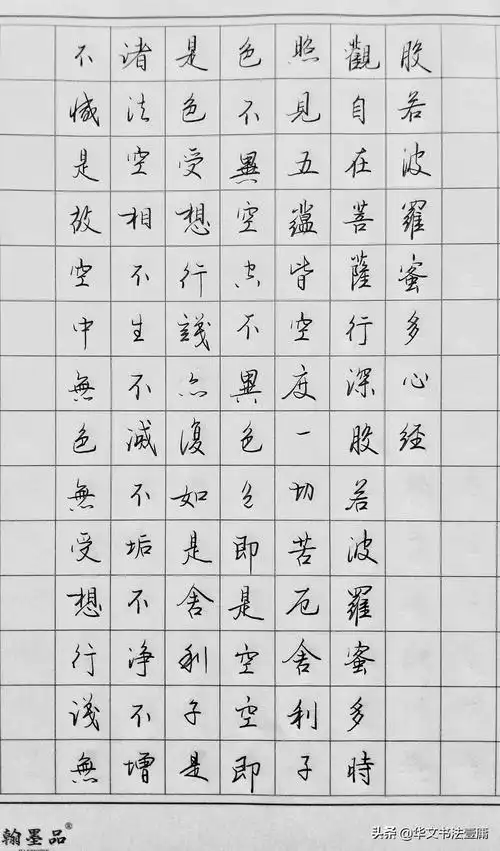 般若波羅蜜多心经
觀自在菩薩行深般若波羅蜜多時
照見五蘊皆空度一切苦厄舍利子
色不異空空不異色色即是空空即
是色受想行識亦復如是舍利子是
諸法空相不生不滅不垢不净不增
不減是故空中無色無受想行識無
翰墨品®
头条@华文书法壹庸